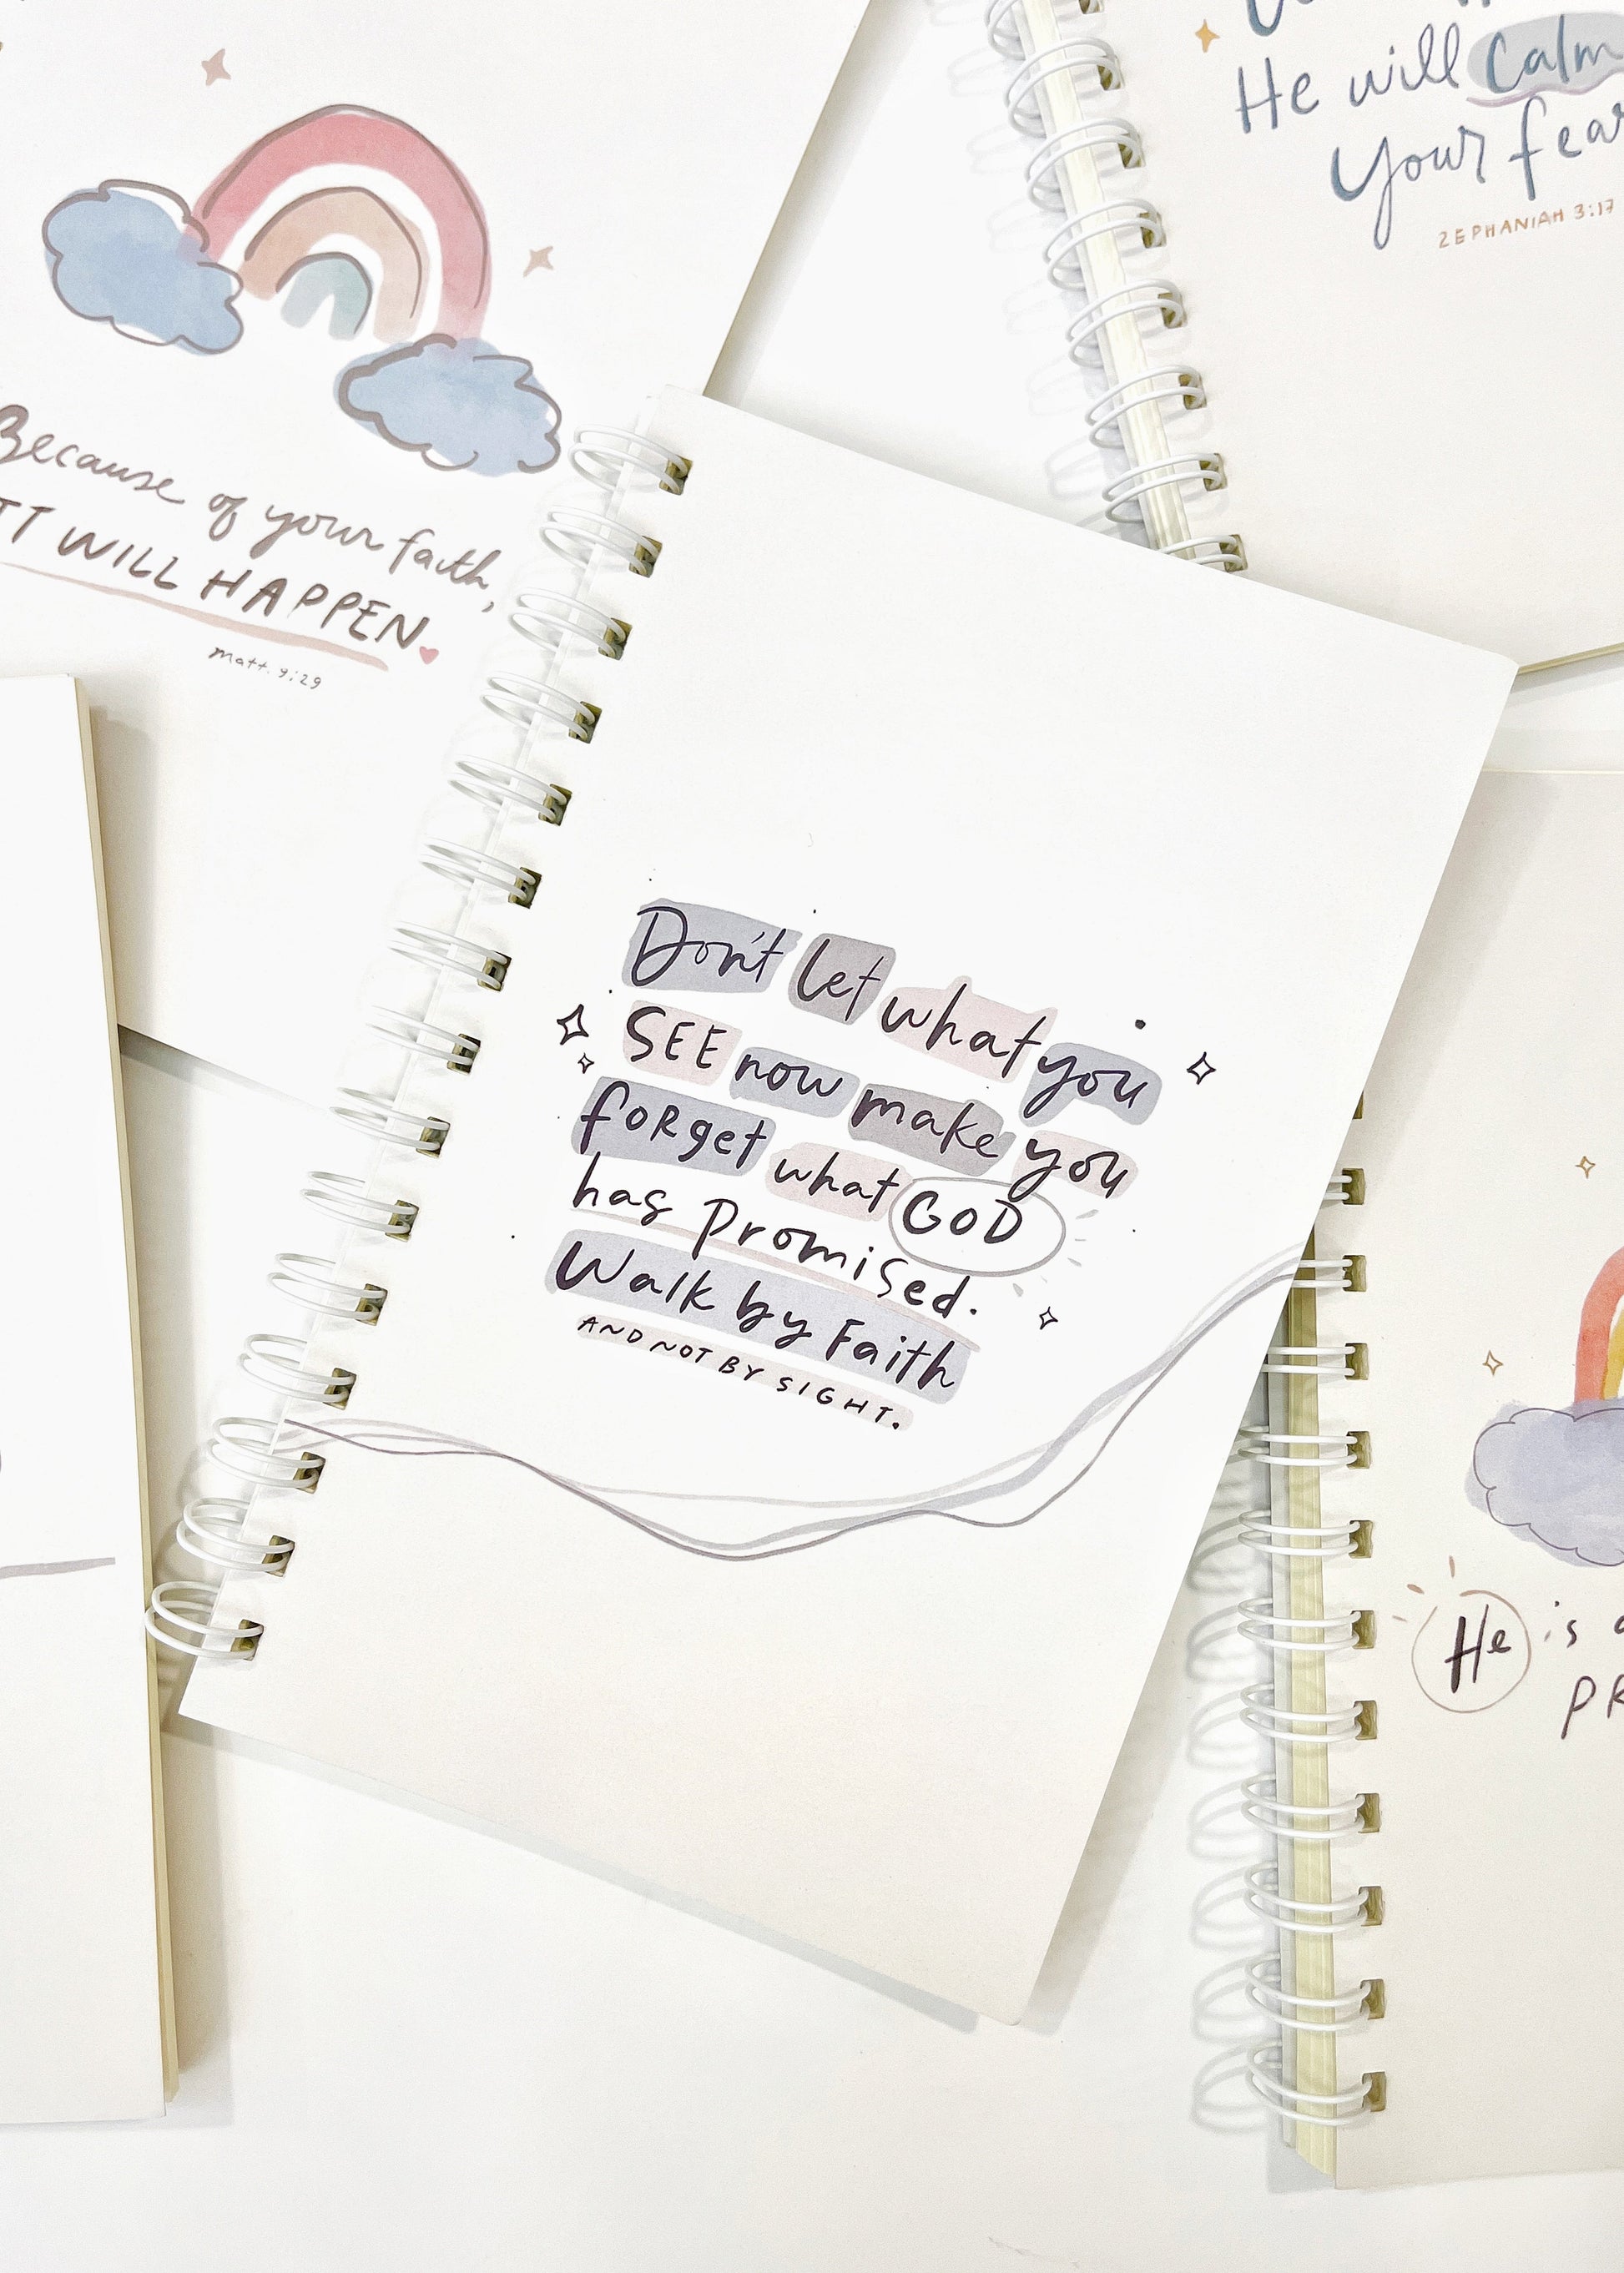 Because of your faith,
WILL HAPPEN.
matt. 9:29
He will calm
your
ZEPHANIAH 3:17
Don't let what you
SEE now make you
forget what GOD
has promised.
Walk by Faith
AND NOT BY SIGHT.
He is